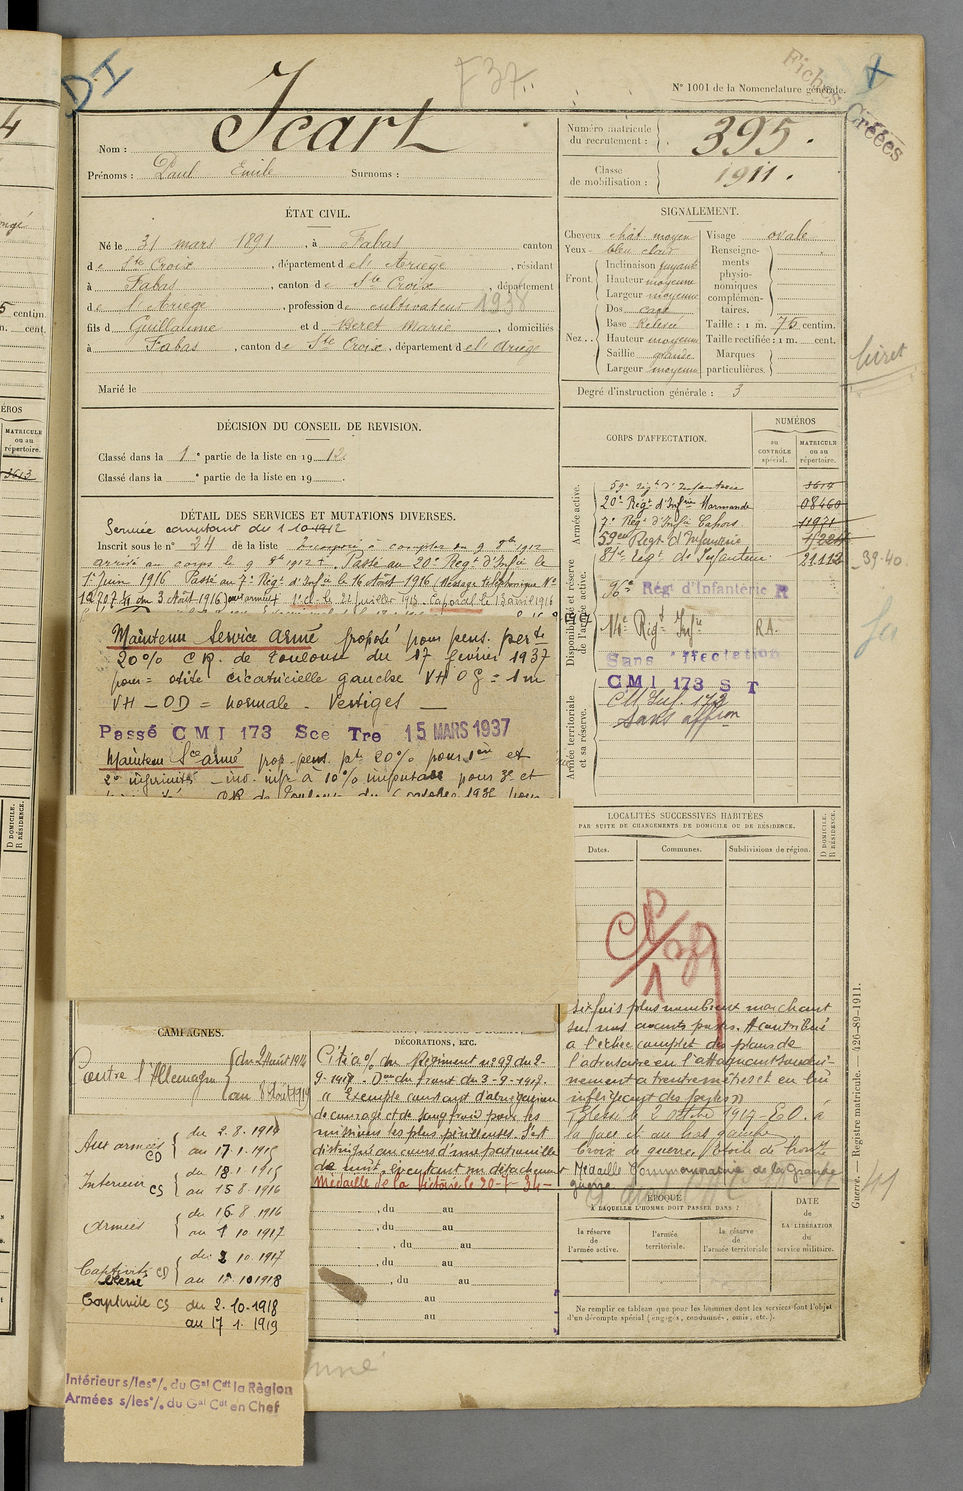 DI
F 37
Fiches Créées
N° 1001 de la Nomenclature générale.
Nom : Icart
Prénoms : Paul Emile Surnoms :
Numéro matricule du recrutement : 395.
Classe de mobilisation : 1911.
ÉTAT CIVIL.
Né le 31 mars 1891, à Fabas canton
de Ste Croix, département de l'Ariège, résidant
à Fabas, canton de Ste Croix, département
de l'Ariège, profession de cultivateur 1938
fils d Guillaume et d Beret Marie, domiciliés
à Fabas, canton de Ste Croix, département de l'Ariège
Marié le
SIGNALEMENT.
Cheveux chât moyen
Yeux bleu clair
Front. Inclinaison fuyante
Hauteur moyenne
Largeur moyenne
Nez. Dos cave
Base Relevée
Hauteur moyenne
Saillie grande
Largeur moyenne
Visage ovale
Renseignements physionomiques complémentaires.
Taille : 1 m. 75 centim.
Taille rectifiée : 1 m. cent.
Marques particulières.
Degré d'instruction générale : 3
livret
DÉCISION DU CONSEIL DE REVISION.
Classé dans la 1e partie de la liste en 1912.
Classé dans la e partie de la liste en 19 .
DÉTAIL DES SERVICES ET MUTATIONS DIVERSES.
Service comptant du 1 10 1912
Inscrit sous le n° 24 de la liste Incorporé à compter du 9 8bre 1912
arrivé au corps le 9 8bre 1912. Passé au 20e Régt d'Infie le
1er Juin 1916 Passé au 7e Régt d'Infie le 16 Août 1916 (Message téléphonique No
du 3 Août 1916) 1e cl. le 22 Juillet 1913. Caporal le 13 avril 1916
Maintenu Service armé proposé pour pens. perte
20% C.R. de Toulouse du 17 fevrier 1937
pour = otite cicatricielle gauche VH OG = 1 m
VH — OD = normale - Vertiges —
Passé CMI 173 Sce Tre 15 MARS 1937
Maintenu Sce armé prop. pens. pte 20% pour 1ère et
2e infirmités — inv. infr à 10% imputable pour 3e et
CORPS D'AFFECTATION.
NUMÉROS
au CONTRÔLE spécial.
MATRICULE ou au répertoire.
Armée active.
59e régt d'Infanterie
20e Régt d'Infrie Marmande 08460
7e Régt d'Infie Cahors 11971
59em Régt d'Infanterie
81e régt de Infanterie 21112
39-40.
Disponibilité et réserve de l'armée active.
96e Régt d'Infanterie R
14e Régt Infie R.A.
Sans affectation
CMI 173 S T
Armée territoriale et sa réserve.
CM Inf. 173
Sans affon
LOCALITÉS SUCCESSIVES HABITÉES
PAR SUITE DE CHANGEMENTS DE DOMICILE OU DE RÉSIDENCE.
Dates.
Communes.
Subdivisions de région.
D DOMICILE. R RÉSIDENCE.
CAMPAGNES.
Contre l'Allemagne du 2 Août 1914
au 8 Août 1919
Aux armées CD du 2.8.1914
au 17.1.1915
Intérieur CS du 18.1.1915
au 15 8.1916
Armées du 16.8.1916
au 1 10.1917
Captivité CD du 2 10.1917
au 1er 10 1918
Captivité CS du 2.10.1918
au 17 1. 1919
Intérieur s/les °/. du Gal Cdt la Région
Armées s/les °/. du Gal Cdt en Chef
DÉCORATIONS, ETC.
Cité à l'O/ du Régiment n° 99 du 2-
9-1917. Om du front du 3-9-1917.
"Exemple constant d'abnégation
de courage et de sang froid pour les
missions les plus périlleuses. S'est
distingué au cours d'une patrouille
de nuit, en luttant un détachement
Médaille de la Victoire le 20-7-34-
six fois plus nombreux marchant
sur nos avants postes. A contribué
à l'échec complet des plans de
l'adversaire en l'attaquant soudai-
nement à trente mètres et en lui
infligeant des pertes"
Blessé le 2 octobre 1917 - E.O. à
la face et au bras gauche
Croix de guerre étoile de bronze
Médaille Commémorative de la Grande
guerre
, du au
, du au
, du au
, du au
, du au
au
au
ÉPOQUE
À LAQUELLE L'HOMME DOIT PASSER DANS :
la réserve de l'armée active.
l'armée territoriale.
la réserve de l'armée territoriale
DATE de LA LIBÉRATION du service militaire.
Ne remplir ce tableau que pour les hommes dont les services font l'objet
d'un décompte spécial (engagés, condamnés, omis, etc.).
Guerre. — Registre matricule. — 426-89-1911.